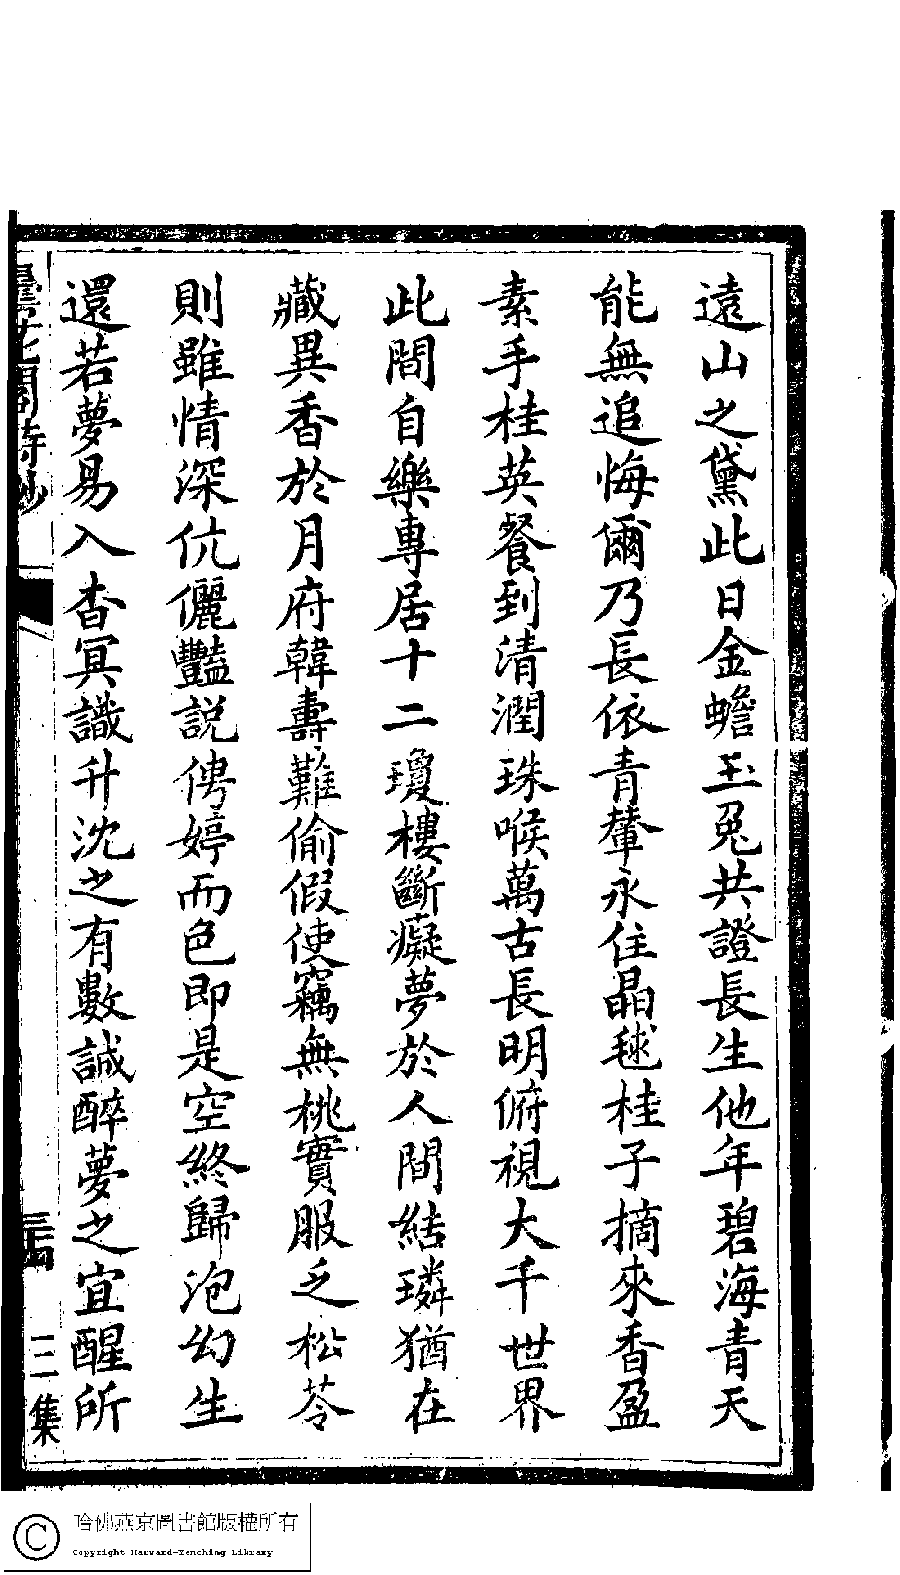 遠山之黛此日金蟾玉兔共證長生他年碧海青天
能無追悔爾乃長依青輦永住晶毬桂子摘來香盈
素手桂英餐到清潤珠喉萬古長明俯視大千世界
此間自樂專居十二瓊樓斷癡夢於人間結璘猶在
藏異香於月府韓壽難偷假使竊無桃實服乏松苓
則雖情深伉儷豔說俜婷而色即是空終歸泡幻生
還若夢易入杳冥識升沈之有數誠醉夢之宜醒所
曇花閣詩鈔
三集
哈佛燕京圖書館版權所有
Copyright Harvard-Yenching Library